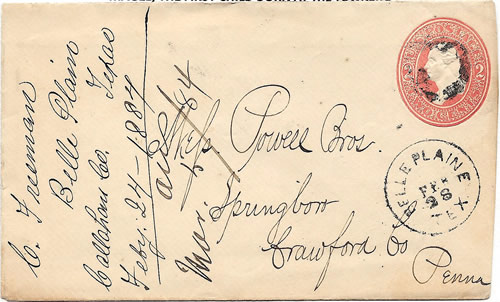 C. Freeman
Belle Plain
Callahan Co. Texas
Feby. 27-1884
Mar. 84
Powell Bros.
Springboro
Crawford Co
Penna
BELLE PLAINE
FEB
28
TEX